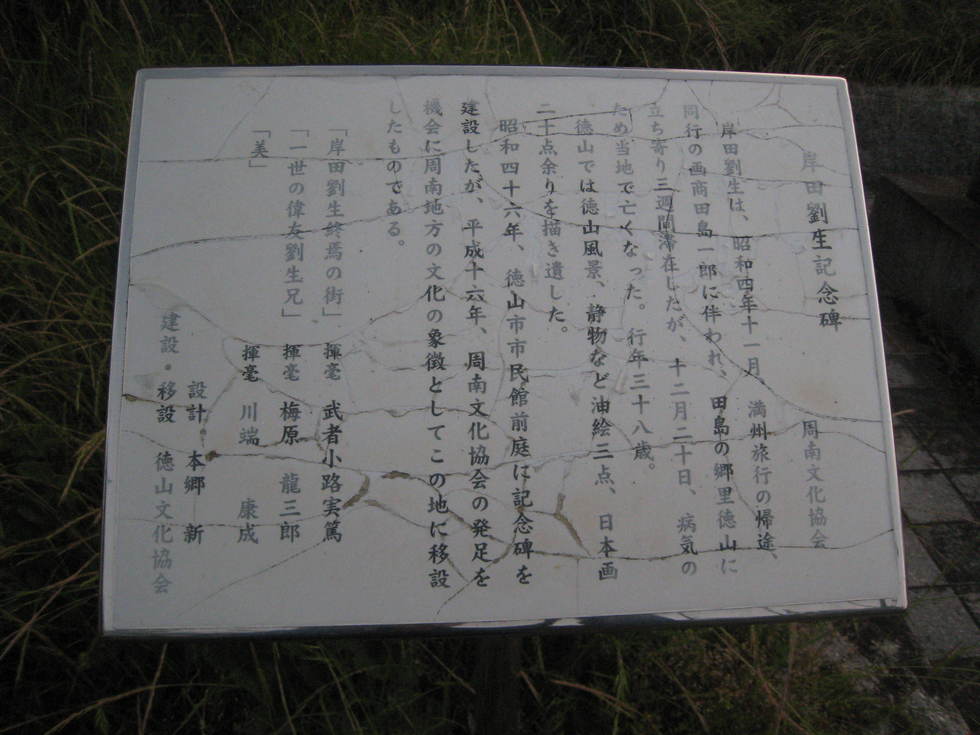 岸田劉生記念碑
周南文化協会
岸田劉生は、昭和四年十一月、満州旅行の帰途、
同行の画商田島一郎に伴われ、田島の郷里徳山に
立ち寄り三週間滞在したが、十二月二十日、病気の
ため当地で亡くなった。行年三十八歳。
徳山では徳山風景、静物など油絵三点、日本画
二十点余りを描き遺した。
昭和四十六年、徳山市市民館前庭に記念碑を
建設したが、平成十六年、周南文化協会の発足を
機会に周南地方の文化の象徴としてこの地に移設
したものである。
「岸田劉生終焉の街」 揮毫 武者小路実篤
「一世の偉友劉生兄」 揮毫 梅原 龍三郎
「美」 揮毫 川端 康成
設計 本郷 新
建設・移設 徳山文化協会